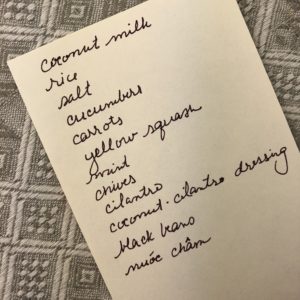 coconut milk
rice
salt
cucumbers
carrots
yellow squash
mint
chives
cilantro
coconut-cilantro dressing
black beans
nước châm